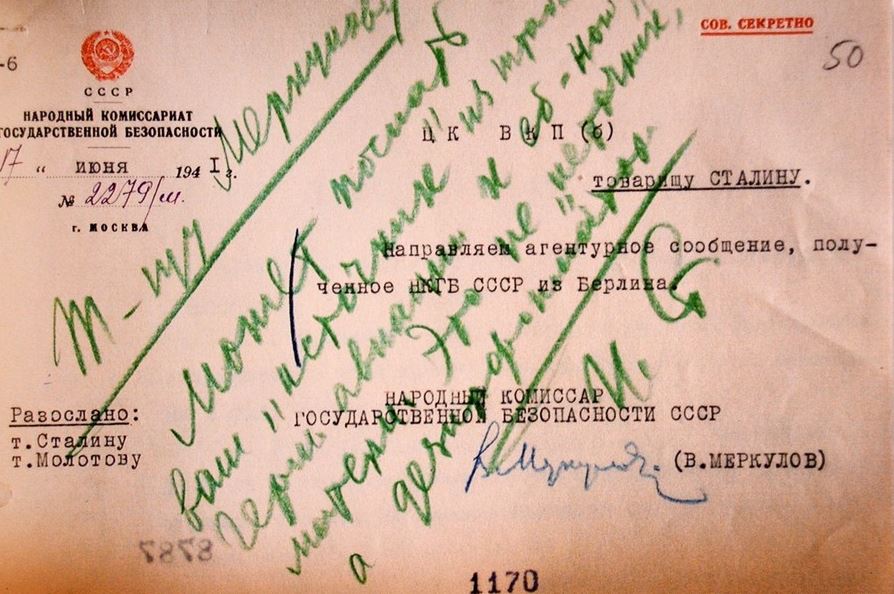 СОВ. СЕКРЕТНО
50
-6
СССР
НАРОДНЫЙ КОМИССАРИАТ
ГОСУДАРСТВЕННОЙ БЕЗОПАСНОСТИ
17 " июня 194 1 г.
№ 2279/м
г. МОСКВА
ЦК ВКП(б)
товарищу СТАЛИНУ.
Направляем агентурное сообщение, полу-
ченное НКГБ СССР из Берлина.
НАРОДНЫЙ КОМИССАР
ГОСУДАРСТВЕННОЙ БЕЗОПАСНОСТИ СССР
В. Меркулов. (В.МЕРКУЛОВ)
Разослано:
т.Сталину
т.Молотову
Т-щу Меркулову
Может послать
ваш "источник" из
герм. авиации к еб-ной
матери. Это не "источник",
а дезинформатор.
И. Ст
8787
1170